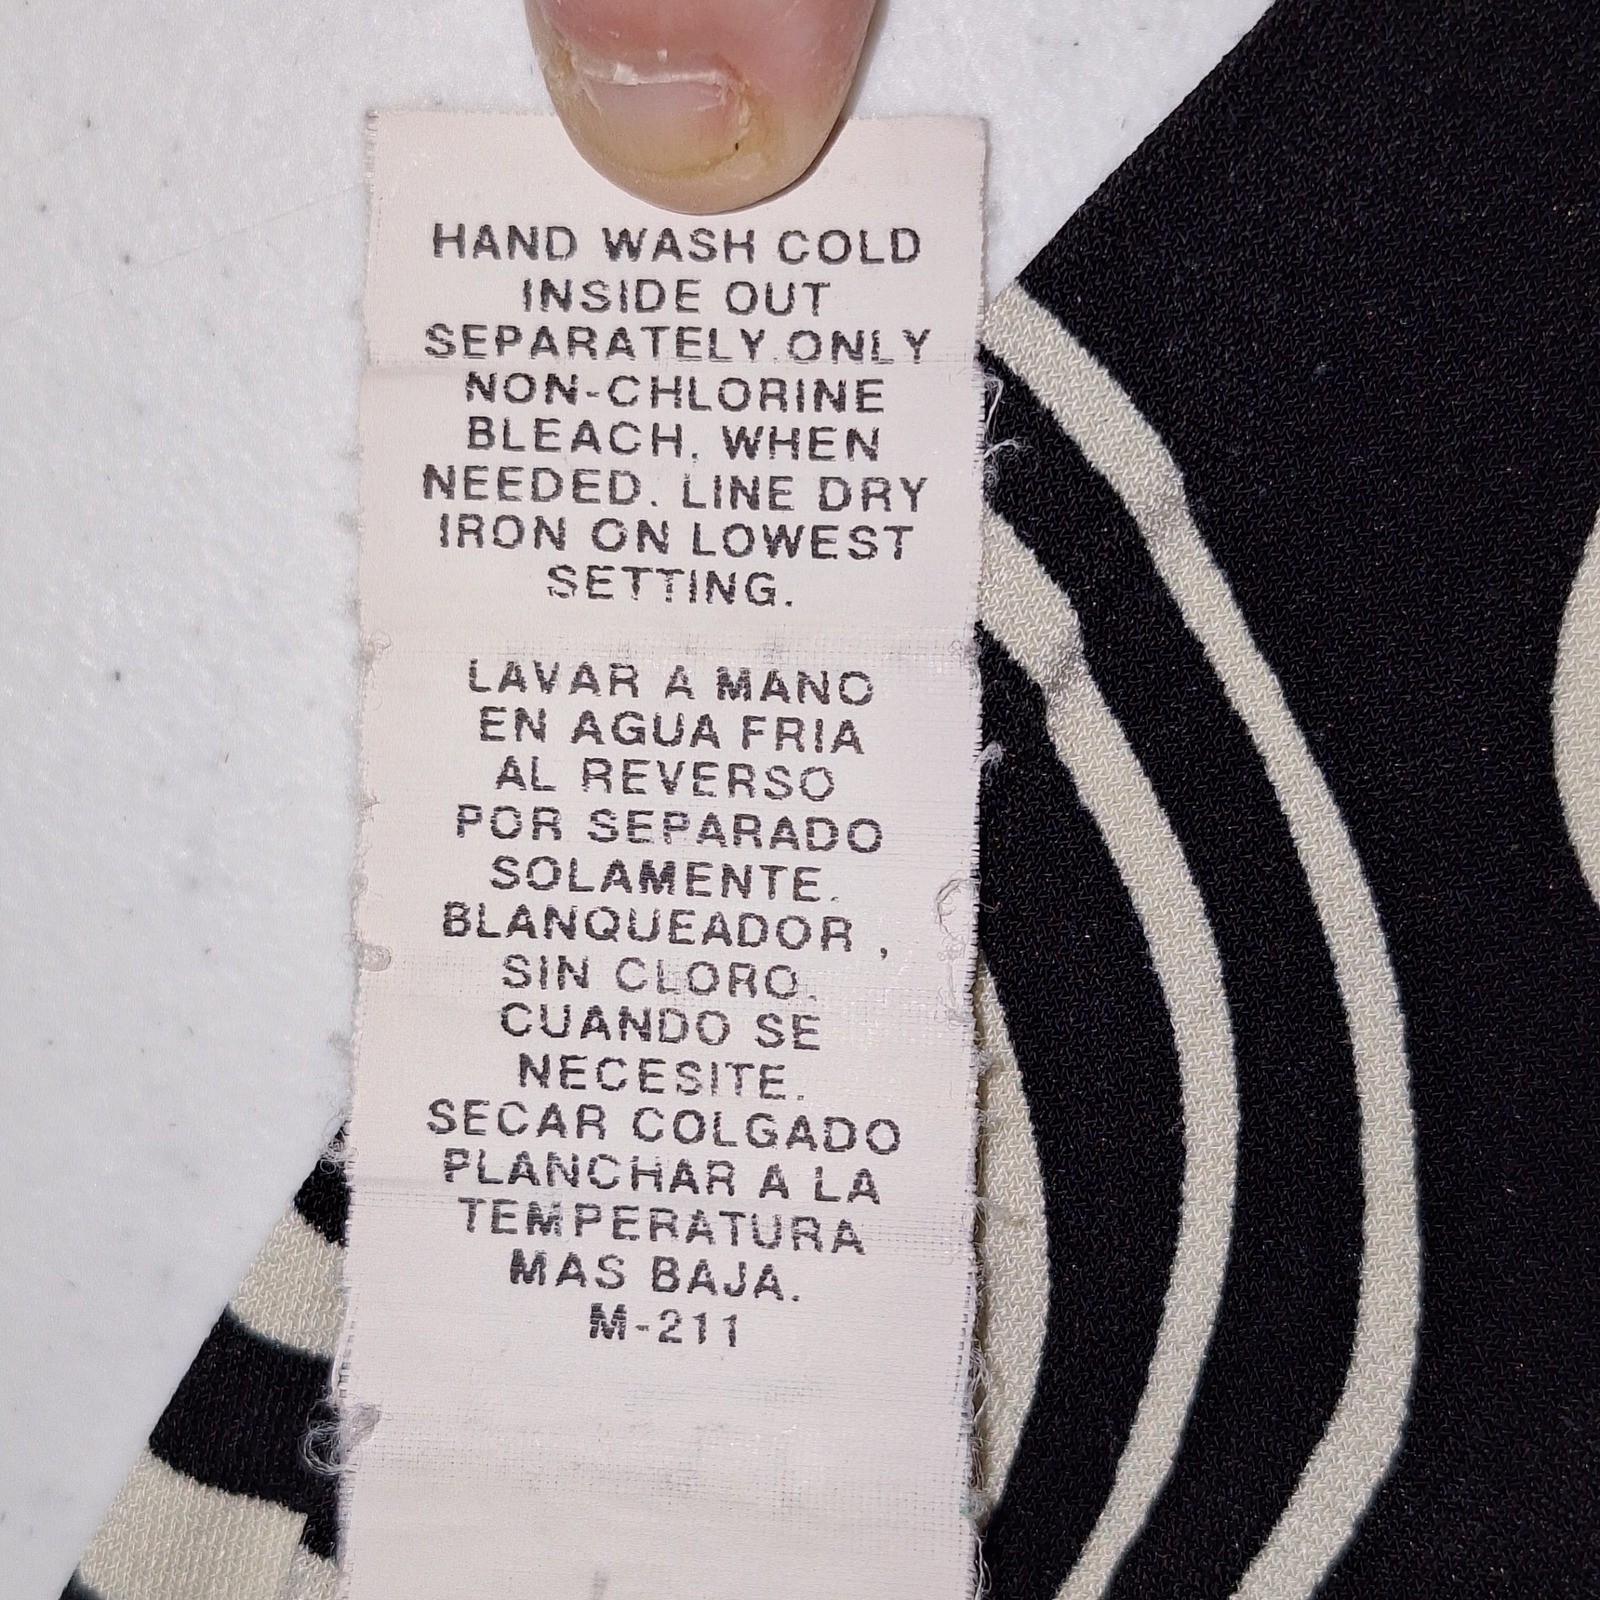 HAND WASH COLD
INSIDE OUT
SEPARATELY.ONLY
NON-CHLORINE
BLEACH, WHEN
NEEDED. LINE DRY
IRON ON LOWEST
SETTING.
LAVAR A MANO
EN AGUA FRIA
AL REVERSO
POR SEPARADO
SOLAMENTE.
BLANQUEADOR ,
SIN CLORO.
CUANDO SE
NECESITE.
SECAR COLGADO
PLANCHAR A LA
TEMPERATURA
MAS BAJA.
M-211